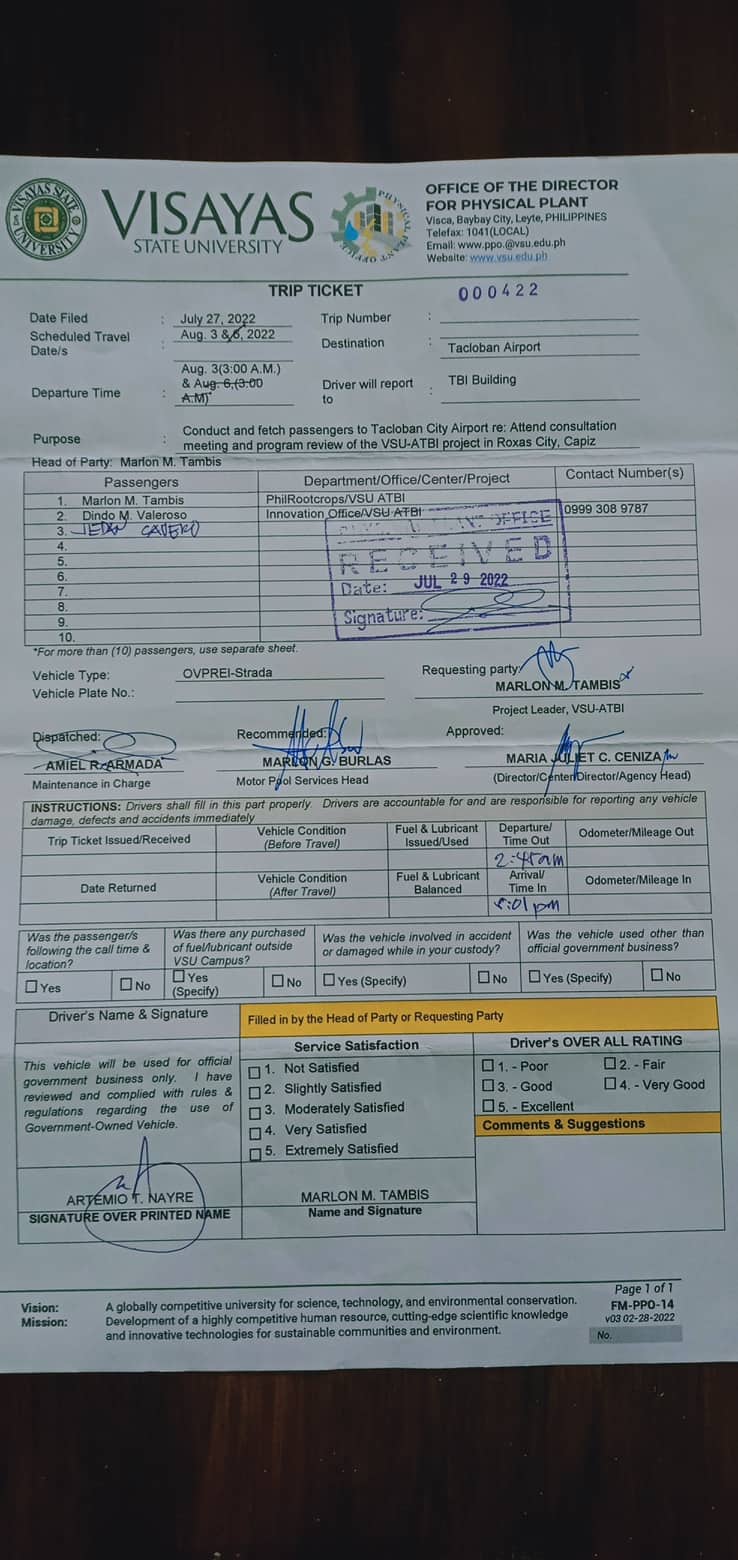 VISAYAS STATE UNIVERSITY
PHYSICAL PLANT OFFICE
VISAYAS
STATE UNIVERSITY
OFFICE OF THE DIRECTOR
FOR PHYSICAL PLANT
Visca, Baybay City, Leyte, PHILIPPINES
Telefax: 1041(LOCAL)
Email: www.ppo.@vsu.edu.ph
Website: www.vsu.edu.ph
TRIP TICKET 000422
Date Filed : July 27, 2022 Trip Number :
Scheduled Travel Date/s : Aug. 3 & 6, 2022 Destination : Tacloban Airport
Departure Time : Aug. 3(3:00 A.M.) & Aug. 6,(3:00 A.M) Driver will report to : TBI Building
Purpose : Conduct and fetch passengers to Tacloban City Airport re: Attend consultation
meeting and program review of the VSU-ATBI project in Roxas City, Capiz
Head of Party: Marlon M. Tambis
Passengers Department/Office/Center/Project Contact Number(s)
1. Marlon M. Tambis PhilRootcrops/VSU ATBI
2. Dindo M. Valeroso Innovation Office/VSU ATBI 0999 308 9787
3. JEDAN CAVERO
4.
5.
6.
7.
8.
9.
10.
OFFICE
RECEIVED
Date: JUL 29 2022
Signature:
*For more than (10) passengers, use separate sheet.
Vehicle Type: OVPREI-Strada Requesting party:
Vehicle Plate No.: MARLON M. TAMBIS
Project Leader, VSU-ATBI
Dispatched: Recommended: Approved:
AMIEL R. ARMADA MARLON G. BURLAS MARIA JULIET C. CENIZA
Maintenance in Charge Motor Pool Services Head (Director/Center Director/Agency Head)
INSTRUCTIONS: Drivers shall fill in this part properly. Drivers are accountable for and are responsible for reporting any vehicle
damage, defects and accidents immediately
Trip Ticket Issued/Received Vehicle Condition (Before Travel) Fuel & Lubricant Issued/Used Departure/ Time Out Odometer/Mileage Out
2:45am
Date Returned Vehicle Condition (After Travel) Fuel & Lubricant Balanced Arrival/ Time In Odometer/Mileage In
:01 pm
Was the passenger/s following the call time & location? Was there any purchased of fuel/lubricant outside VSU Campus? Was the vehicle involved in accident or damaged while in your custody? Was the vehicle used other than official government business?
☐ Yes ☐ No ☐ Yes (Specify) ☐ No ☐ Yes (Specify) ☐ No ☐ Yes (Specify) ☐ No
Driver's Name & Signature Filled in by the Head of Party or Requesting Party
This vehicle will be used for official
government business only. I have
reviewed and complied with rules &
regulations regarding the use of
Government-Owned Vehicle.
ARTEMIO T. NAYRE
SIGNATURE OVER PRINTED NAME
Service Satisfaction
☐ 1. Not Satisfied
☐ 2. Slightly Satisfied
☐ 3. Moderately Satisfied
☐ 4. Very Satisfied
☐ 5. Extremely Satisfied
MARLON M. TAMBIS
Name and Signature
Driver's OVER ALL RATING
☐ 1. - Poor ☐ 2. - Fair
☐ 3. - Good ☐ 4. - Very Good
☐ 5. - Excellent
Comments & Suggestions
Vision: A globally competitive university for science, technology, and environmental conservation.
Mission: Development of a highly competitive human resource, cutting-edge scientific knowledge
and innovative technologies for sustainable communities and environment.
Page 1 of 1
FM-PPO-14
v03 02-28-2022
No.